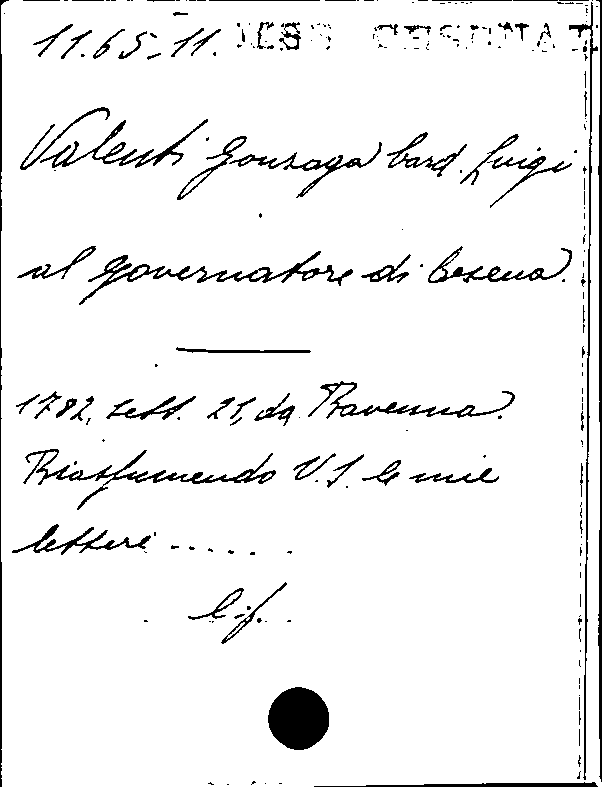 11.65.11. MSS CESENAT
Valenti Gonzaga Card. Luigi
al Governatore di Cesena.
1782, sett. 21, da Ravenna.
Riassumendo V.S. le mie
lettere ......
C.f.